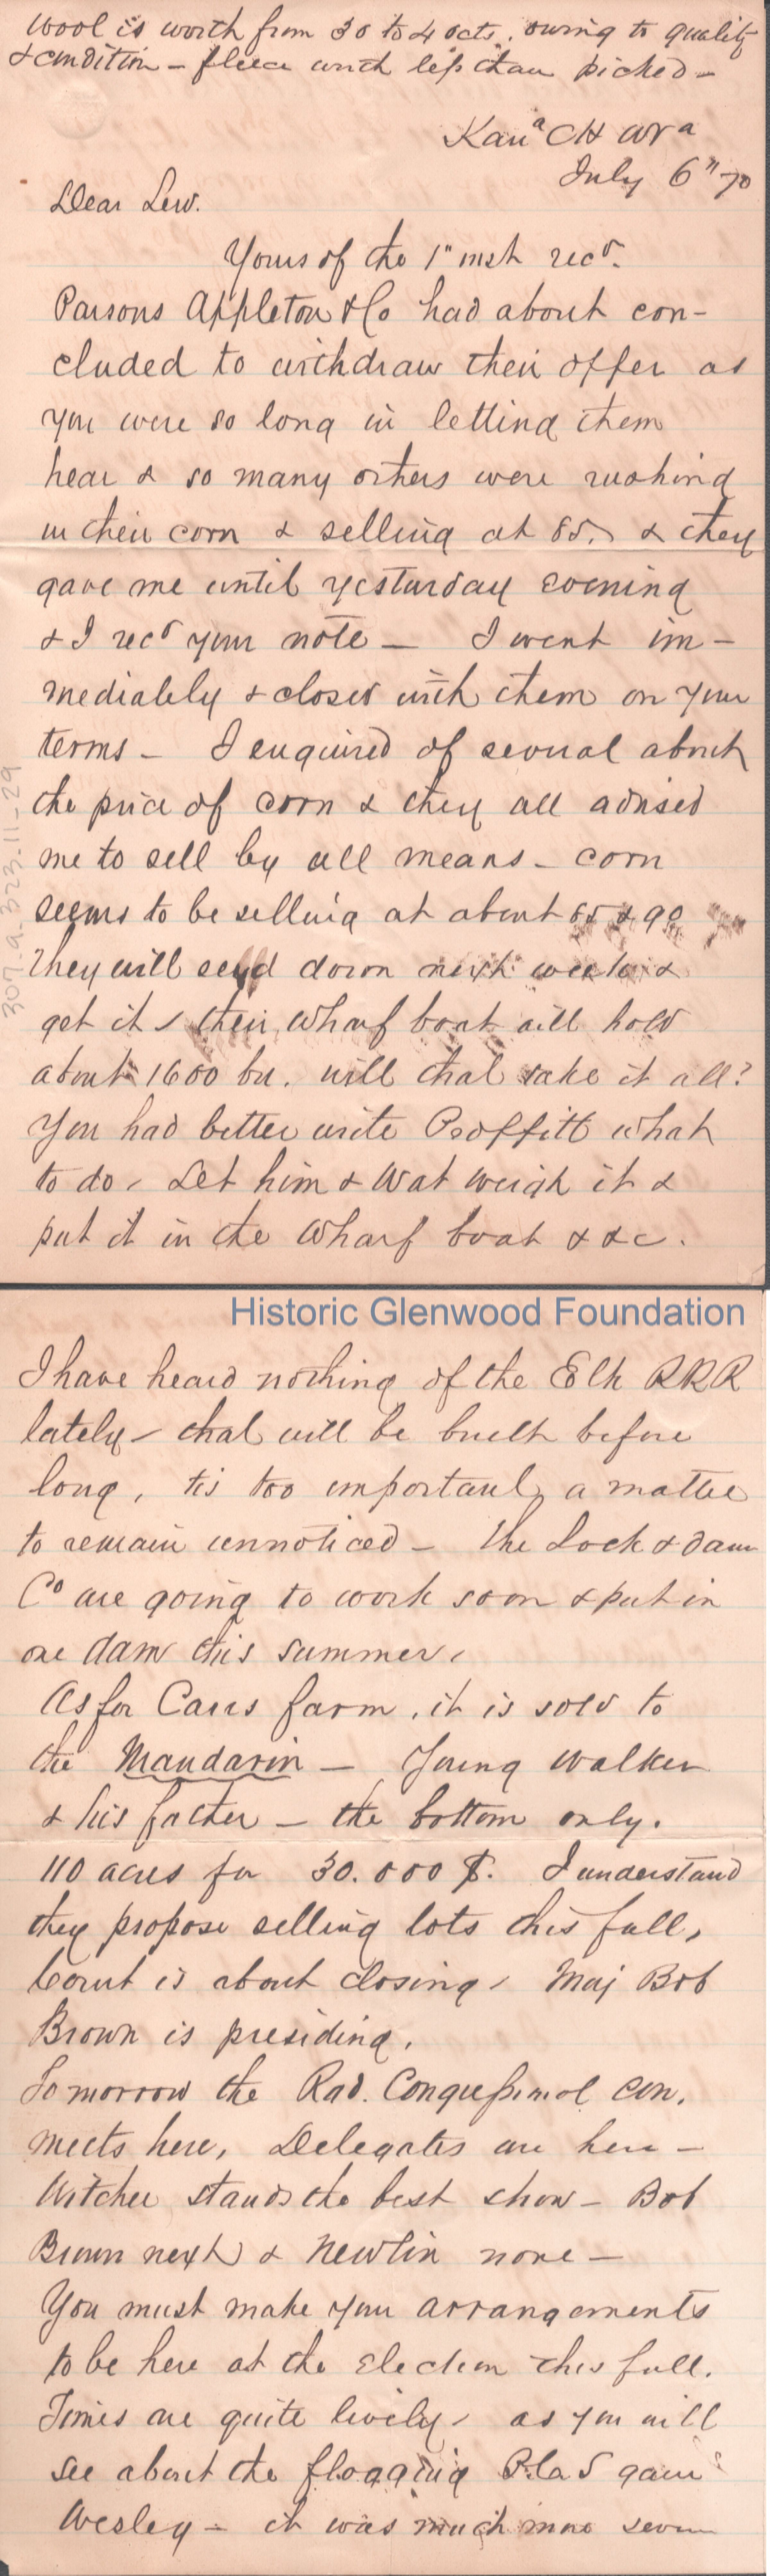 Wool is worth from 30 to 40 cts. owing to quality
& condition - fleece worth less than picked -
Kanª CH WVª
July 6" 70
Dear Lew.
Yours of the 1" inst recd.
Parsons Appleton & Co had about con-
cluded to withdraw their offer as
you were so long in letting them
hear & so many others were rushing
in their corn & selling at 85. & they
gave me until yesturday evening
& I recd your note - I went im-
mediately & closed with them on your
terms - I enquired of several about
the price of corn & they all advised
me to sell by all means - corn
seems to be selling at about 85 & 90
They will send down next week &
get it, their Wharf boat will hold
about 1600 bu. will that take it all?
You had better write Proffitt what
to do, Let him & Wat weigh it &
put it in the Wharf boat & &c.
307.a.323.11-29
Historic Glenwood Foundation
I have heard nothing of the Elk RRR
lately - that will be built before
long, tis too important a matter
to remain unnoticed - The Lock & dam
Co are going to work soon & put in
one dam this summer,
As for Carrs farm, it is sold to
the Mandarin - Young Walker
& his father - the bottom only.
110 acres for 30.000 $. I understand
they propose selling lots this fall,
Court is about closing, Maj Bob
Brown is presiding.
Tomorrow the Rad. Congressional Con.
meets here, Delegates are here -
Witcher stands the best show - Bob
Brown next & Newlin none -
You must make your arrangements
to be here at the Election this fall.
Times are quite lively, as you will
see about the flogging gave
Wesley - it was much more severe